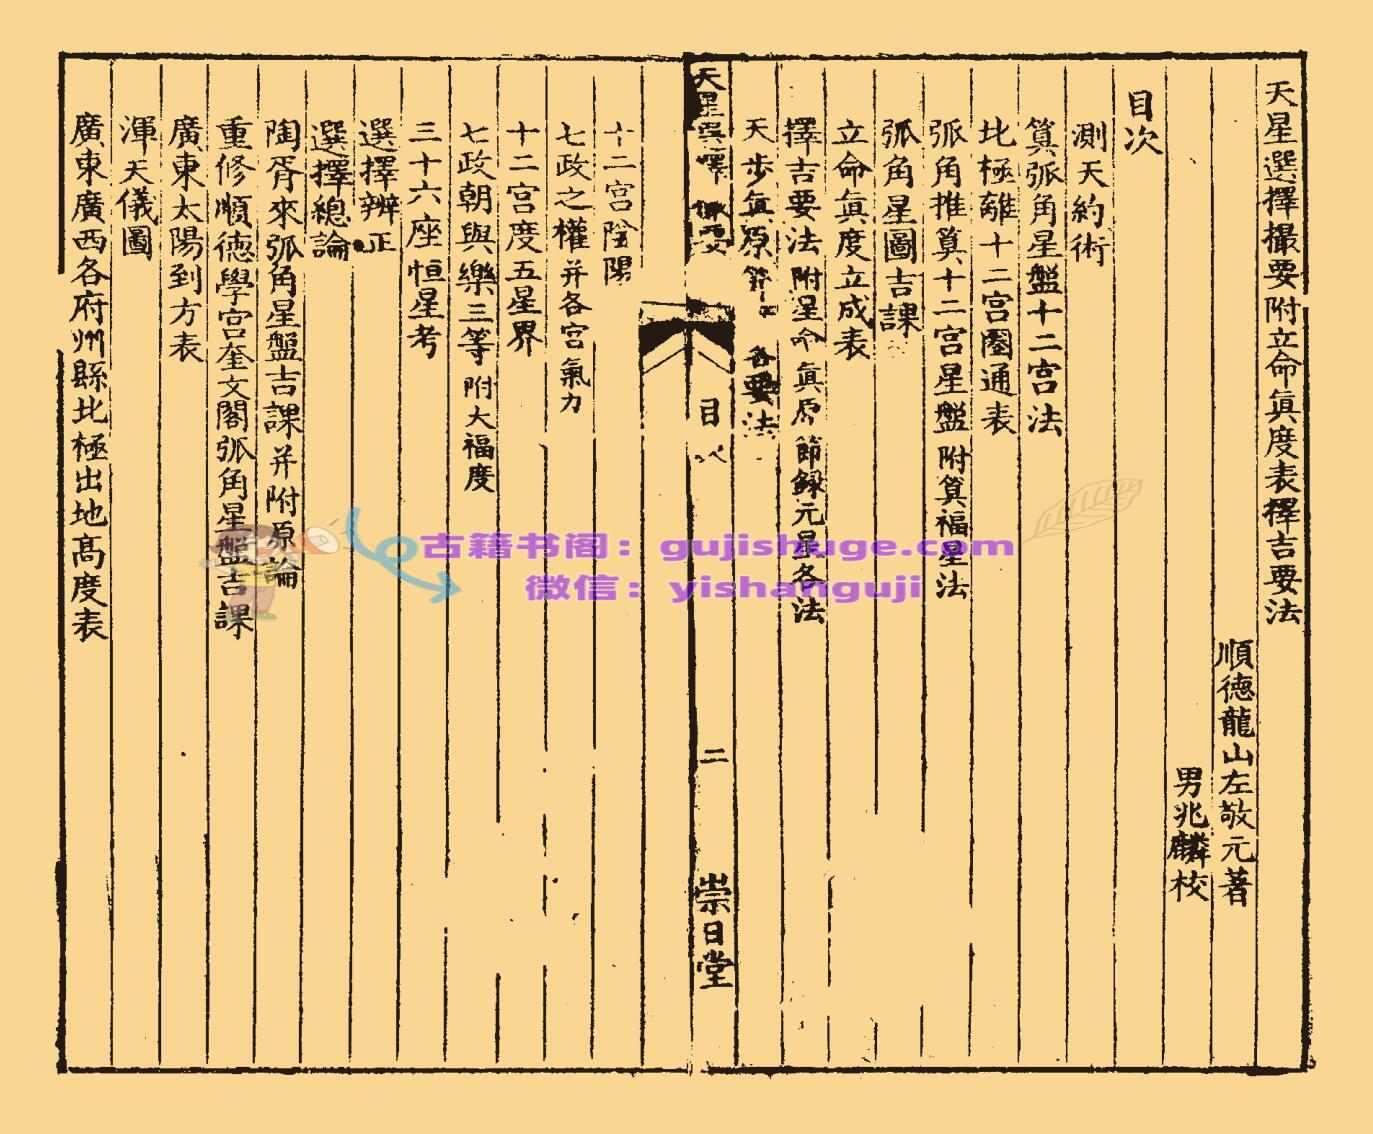 天星選擇撮要附立命眞度表擇吉要法
順德龍山左敬元著
男兆麟校
目次
測天約術
算弧角星盤十二宮法
北極離十二宮圈通表
弧角推算十二宮星盤附算福星法
弧角星圖吉課
立命眞度立成表
擇吉要法附星命眞原節録元星各法
天步眞原 各要法
天星選擇撮要
目
二
崇日堂
十二宮陰陽
七政之權并各宮氣力
十二宮度五星界
七政朝與樂三等附大福度
三十六座恒星考
選擇辨正
選擇總論
陶胥來弧角星盤吉課并附原論
重修順德學宮奎文閣弧角星盤吉課
廣東太陽到方表
渾天儀圖
廣東廣西各府州縣北極出地高度表
古籍书阁：gujishuge.com
微信：yishanguji